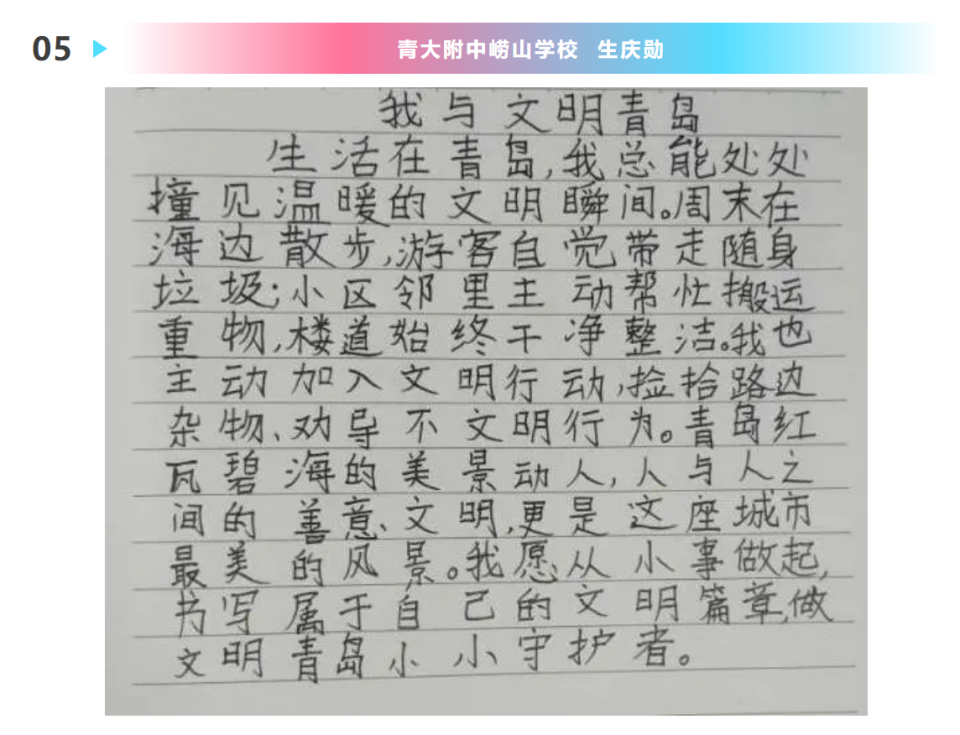 05
青大附中崂山学校 生庆勋
我与文明青岛
生活在青岛,我总能处处
撞见温暖的文明瞬间。周末在
海边散步,游客自觉带走随身
垃圾;小区邻里主动帮忙搬运
重物,楼道始终干净整洁。我也
主动加入文明行动,捡拾路边
杂物、劝导不文明行为。青岛红
瓦碧海的美景动人,人与人之
间的善意、文明,更是这座城市
最美的风景。我愿从小事做起,
书写属于自己的文明篇章,做
文明青岛小小守护者。